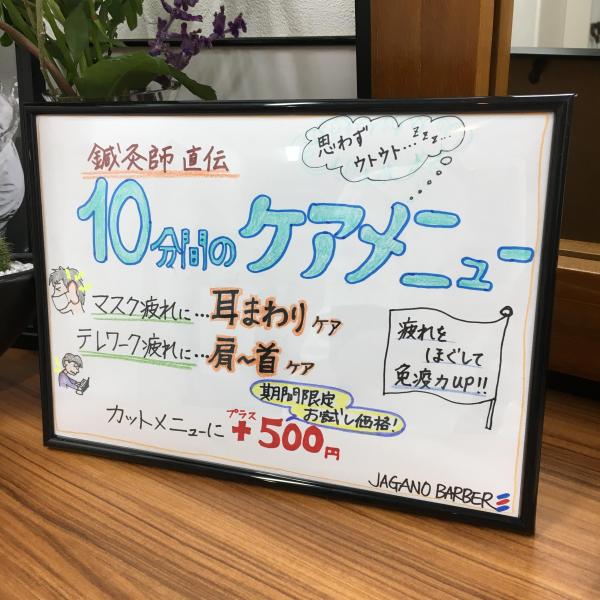 思わず
ウトウト…zzz…
鍼灸師 直伝
10分間のケアメニュー
マスク疲れに…耳まわりケア
テレワーク疲れに…肩〜首ケア
疲れを
ほぐして
免疫力UP!!
期間限定
お試し価格!
カットメニューに
プラス
+500円
JAGANO BARBER